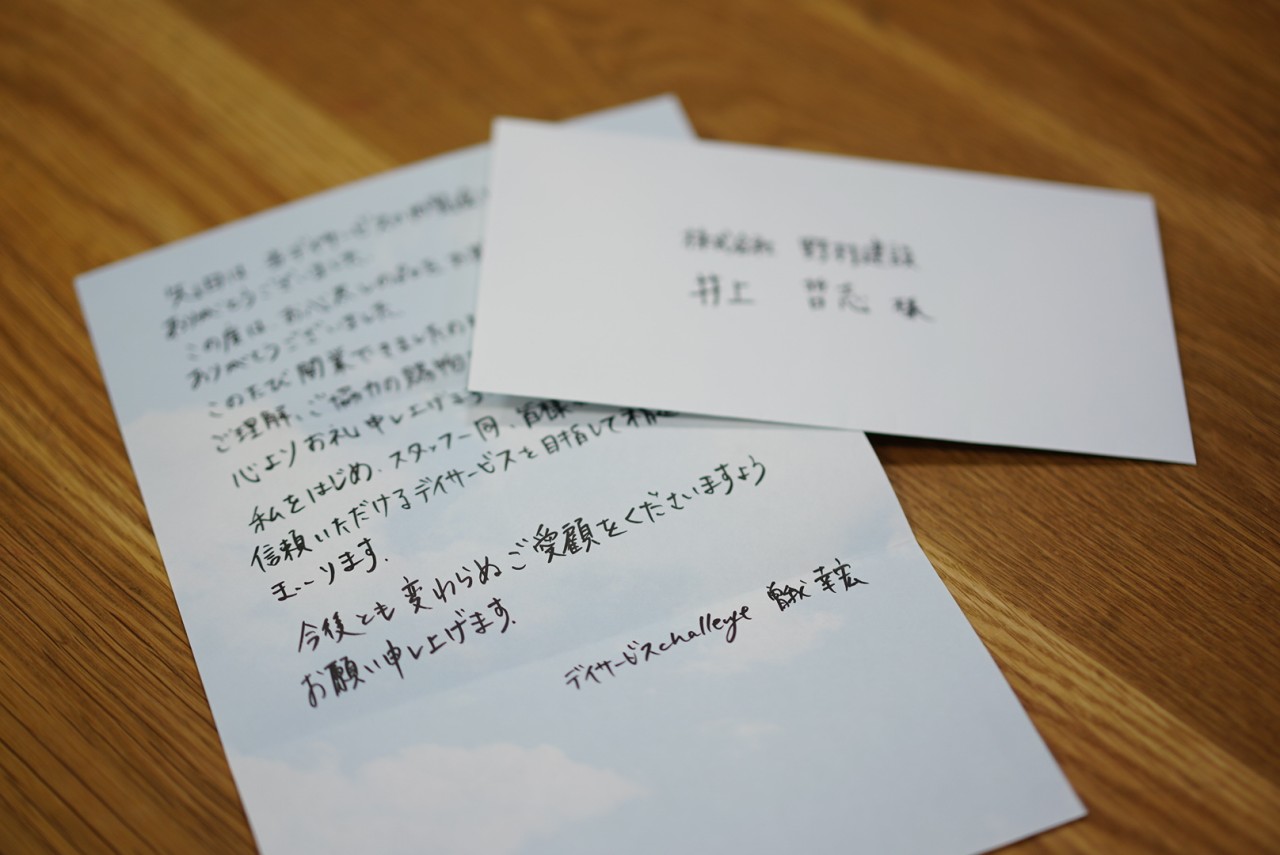 株式会社 野村建設
井上 哲志 様
先日は 当デイサービス
ありがとうございました
この度は お心のこもった お
ありがとうございました
このたび開業できましたのも
ご理解、ご協力の賜物
心よりお礼申し上げます
私をはじめ、スタッフ一同、皆様
信頼いただけるデイサービスを目指して
まいります。
今後とも変わらぬご愛顧をくださいますよう
お願い申し上げます。
デイサービスchallenge 幸宏